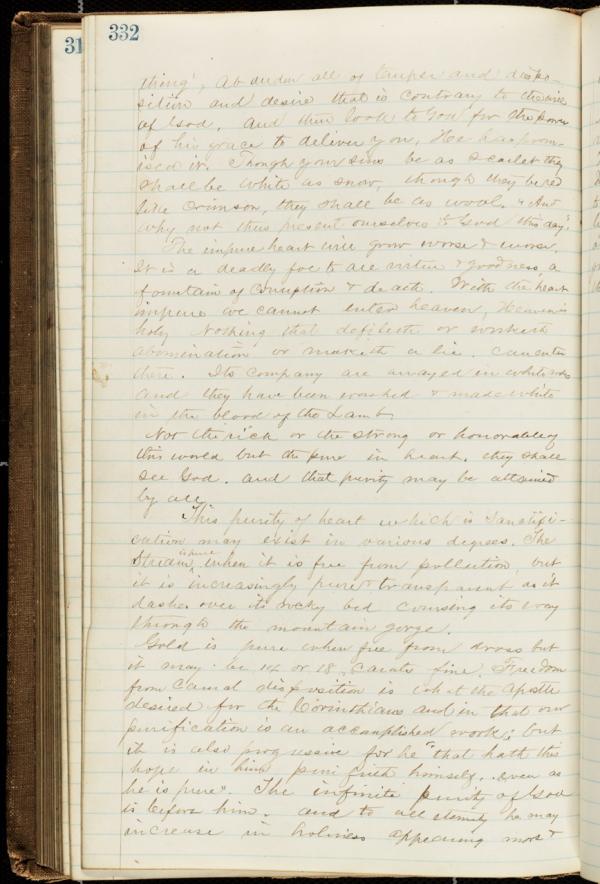 31
332
thing", abandon all of temper and dispo-
sition and desire that is contrary to the will
of God. And then look to God for the power
of his grace to deliver you. He has prom-
ised it. Though your sins be as scarlet they
shall be white as snow, though they be red
like crimson, they shall be as wool. " And
why not thus present ourselves to God this day".
The impure heart will grow worse & worse.
It is a deadly foe to all virtue & goodness, a
fountain of corruption & death. With the heart
impure we cannot enter heaven, Heaven is
holy Nothing that defileth or worketh
abomination or maketh a lie. can enter
there. Its company are arrayed in white robes
and they have been washed & made white
in the blood of the Lamb.
Not the rich or the strong or honorable of
this world but the pure in heart. they shall
see God. and that purity may be attained
by all.
This purity of heart which is sanctifi-
cation may exist in various degrees. The
Stream is pure when it is free from pollution, but
it is increasingly pure & transparent as it
dashes over its rocky bed coursing its way
through the mountain gorge.
Gold is pure when free from dross but
it may be 14 or 18 carats fine. Freedom
from carnal disposition is what the apostle
desired for the Corinthians and in that our
purification is an accomplished work; but
it is also progressive for he "that hath this
hope in him purifieth himself. even as
he is pure". The infinite purity of God
is before him. and to all eternity he may
increase in holiness appearing more &